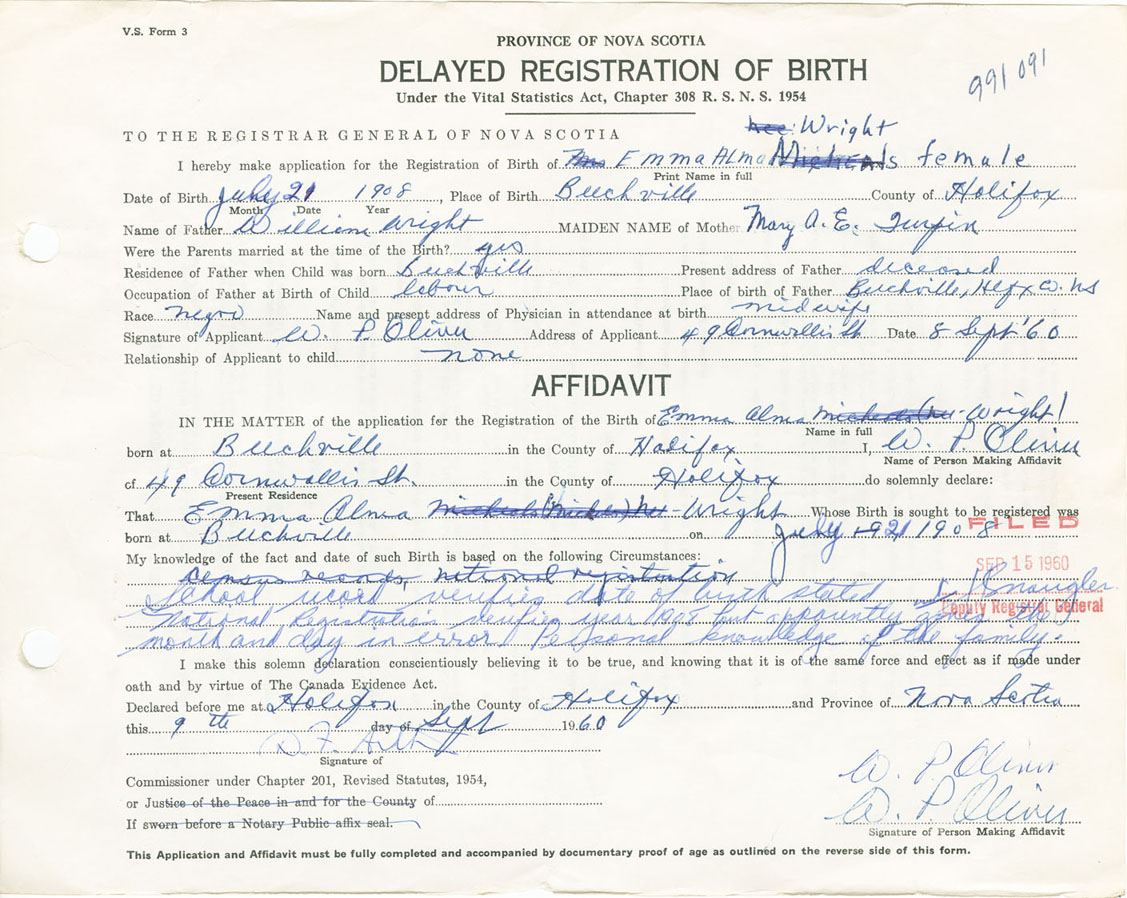 V.S. Form 3
PROVINCE OF NOVA SCOTIA
991 091
DELAYED REGISTRATION OF BIRTH
Under the Vital Statistics Act, Chapter 308 R. S. N. S. 1954
nee: Wright
TO THE REGISTRAR GENERAL OF NOVA SCOTIA
I hereby make application for the Registration of Birth of Mrs Emma Alma female
Print Name in full
Date of Birth July 21 1908, Place of Birth Beechville County of Halifax
Month Date Year
Name of Father William Wright MAIDEN NAME of Mother Mary A. E. Turpin
Were the Parents married at the time of the Birth? yes
Residence of Father when Child was born Beechville Present address of Father deceased
Occupation of Father at Birth of Child labour Place of birth of Father Beechville, Hlfx Co. NS
Race negro Name and present address of Physician in attendance at birth midwife
Signature of Applicant W. P. Oliver Address of Applicant 49 Cornwallis St Date 8 Sept '60
Relationship of Applicant to child none
AFFIDAVIT
IN THE MATTER of the application for the Registration of the Birth of Emma Alma Micheals (nee - Wright)
Name in full
born at Beechville in the County of Halifax I, W. P. Oliver
Name of Person Making Affidavit
of 49 Cornwallis St. in the County of Halifax do solemnly declare:
Present Residence
That Emma Alma Micheals nee - Wright Whose Birth is sought to be registered was
born at Beechville on July 21 1908
FILED
My knowledge of the fact and date of such Birth is based on the following Circumstances:
SEP 15 1960
census records, national registration
School record verifies date of birth stated
Deputy Registrar General
National Registration verifies year 1908 but apparently
month and day in error. Personal knowledge of the family.
I make this solemn declaration conscientiously believing it to be true, and knowing that it is of the same force and effect as if made under
oath and by virtue of The Canada Evidence Act.
Declared before me at Halifax in the County of Halifax and Province of Nova Scotia
this 9th day of Sept 1960
Signature of
Commissioner under Chapter 201, Revised Statutes, 1954,
W. P. Oliver
or Justice of the Peace in and for the County of
W. P. Oliver
If sworn before a Notary Public affix seal.
Signature of Person Making Affidavit
This Application and Affidavit must be fully completed and accompanied by documentary proof of age as outlined on the reverse side of this form.